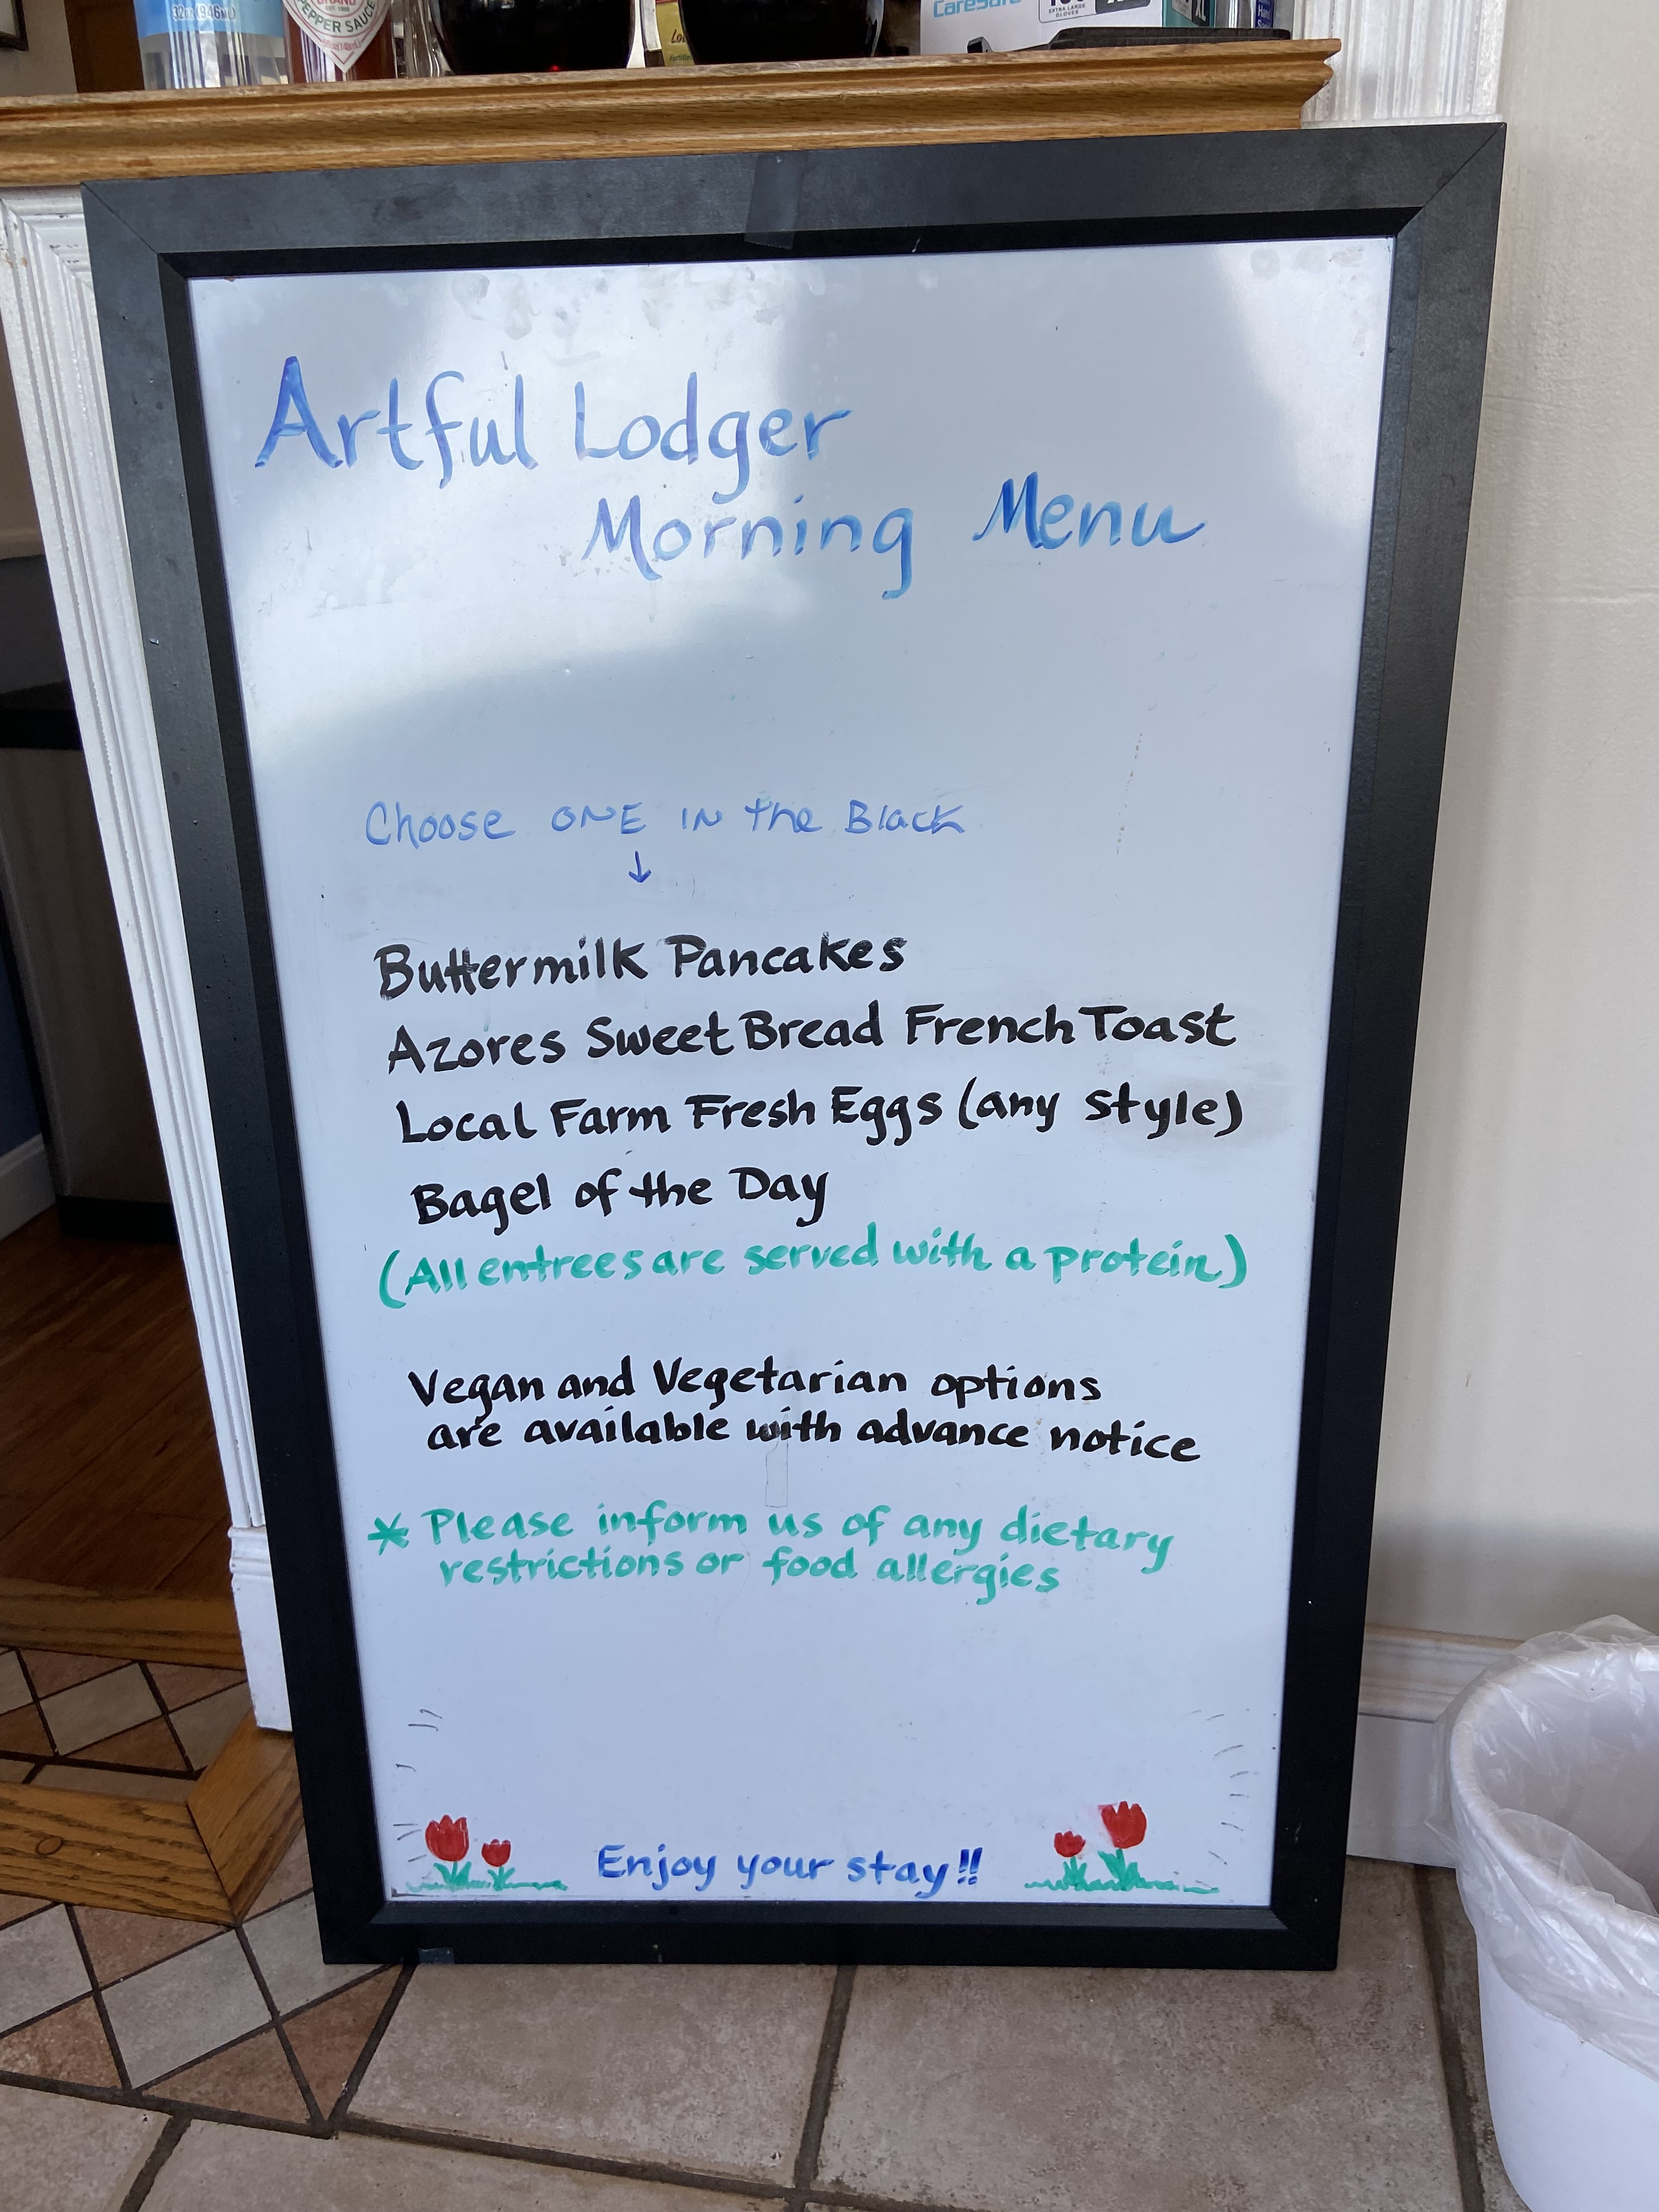 32oz (946mL)
BRAND
PEPPER SAUCE
CareSafe
EXTRA LARGE
GLOVES
Artful Lodger
Morning Menu
Choose ONE IN the Black
↓
Buttermilk Pancakes
Azores Sweet Bread French Toast
Local Farm Fresh Eggs (any style)
Bagel of the Day
(All entrees are served with a protein)
Vegan and Vegetarian options
are available with advance notice
* Please inform us of any dietary
restrictions or food allergies
Enjoy your stay!!